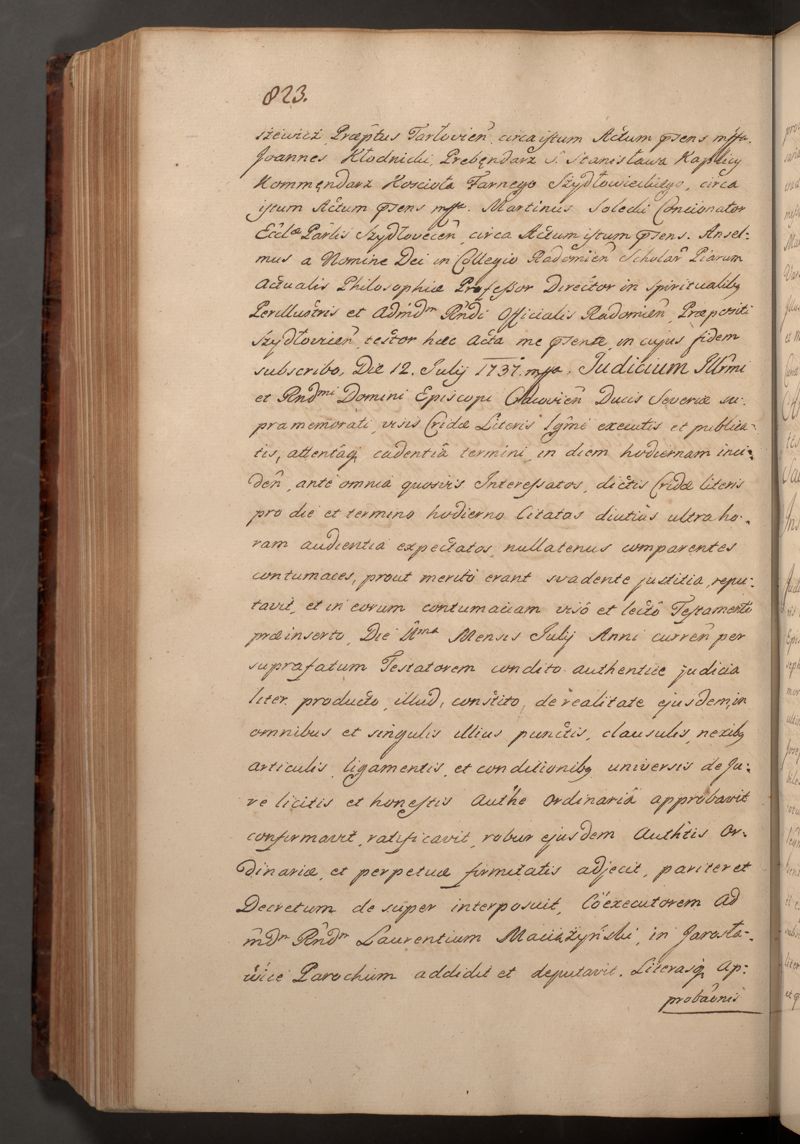 823.
szewicz Præptus Tarłovien̄, circa istum Actum pr̄sens mpp.
Joannes Kłodnicki, Prebęndarz S. Stanisława Kaplicy
Kommęndarz Kościoła Farnego Szydłowieckiego, circa
istum Actum pr̄sens mpp. Martinus Solecki Concionator
Eccl̄æ Par̄lis Szydłoveceń circa Actum istum pr̄sens. Ansel-
mus a Nomine Dei in Collegio Radomień Scholar̄ Piarum
Actualis Philosophiæ Professor Director in Spiritualibq
Perillustris et Admd̄m Rn̄di Officialis Radomień, Præpositi
Szydłovień, testor hæc Acta me pr̄sente, in cujus fidem
subscribo, Die 12. Julij 1737. mpp. Judicium Illr̄mi
et Rnd̄mi Domini Episcopi Cracovień Ducis Severiæ su-
pra memorati, visis Cridæ Literis lgm̄e executis et publica-
tis, attentaq cadentiâ termini in diem hodiernam inci-
deń, ante omnia quosvis Interessatos, dictis Cridæ literis
pro die et termino hodierno Citatos diutius ultra ho-
ram audientiæ expectatos, nullatenus comparentes
contumaces, prout meritò erant svadente justitia, repu-
tavit, et in eorum contumaciam visô et lectô Testamento
præinserto, Die IIma Mensis Julij Anni curreń per
suprafatum Testatorem condito authentice judicia
liter producto, illud, constito, de realitate ejusdem, in
omnibus et singulis illius punctis, clausulis, nexibq
articulis, ligamentis, et conditionibq universis de Ju-
re licitis et honestis Auth̄e Ordinariâ approbavit
confirmavit, ratificavit, robur ejusdem Auth̄tis Or-
dinariæ, et perpetuæ firmitatis adjecit, pariter et
Decretum de super interposuit, Coexecutorem Ad
m̄dm Rn̄dm Laurentium Maciążyński, in Jarosła-
wice Parochum addidit et deputavit. Literasq Ap-
probaōnis